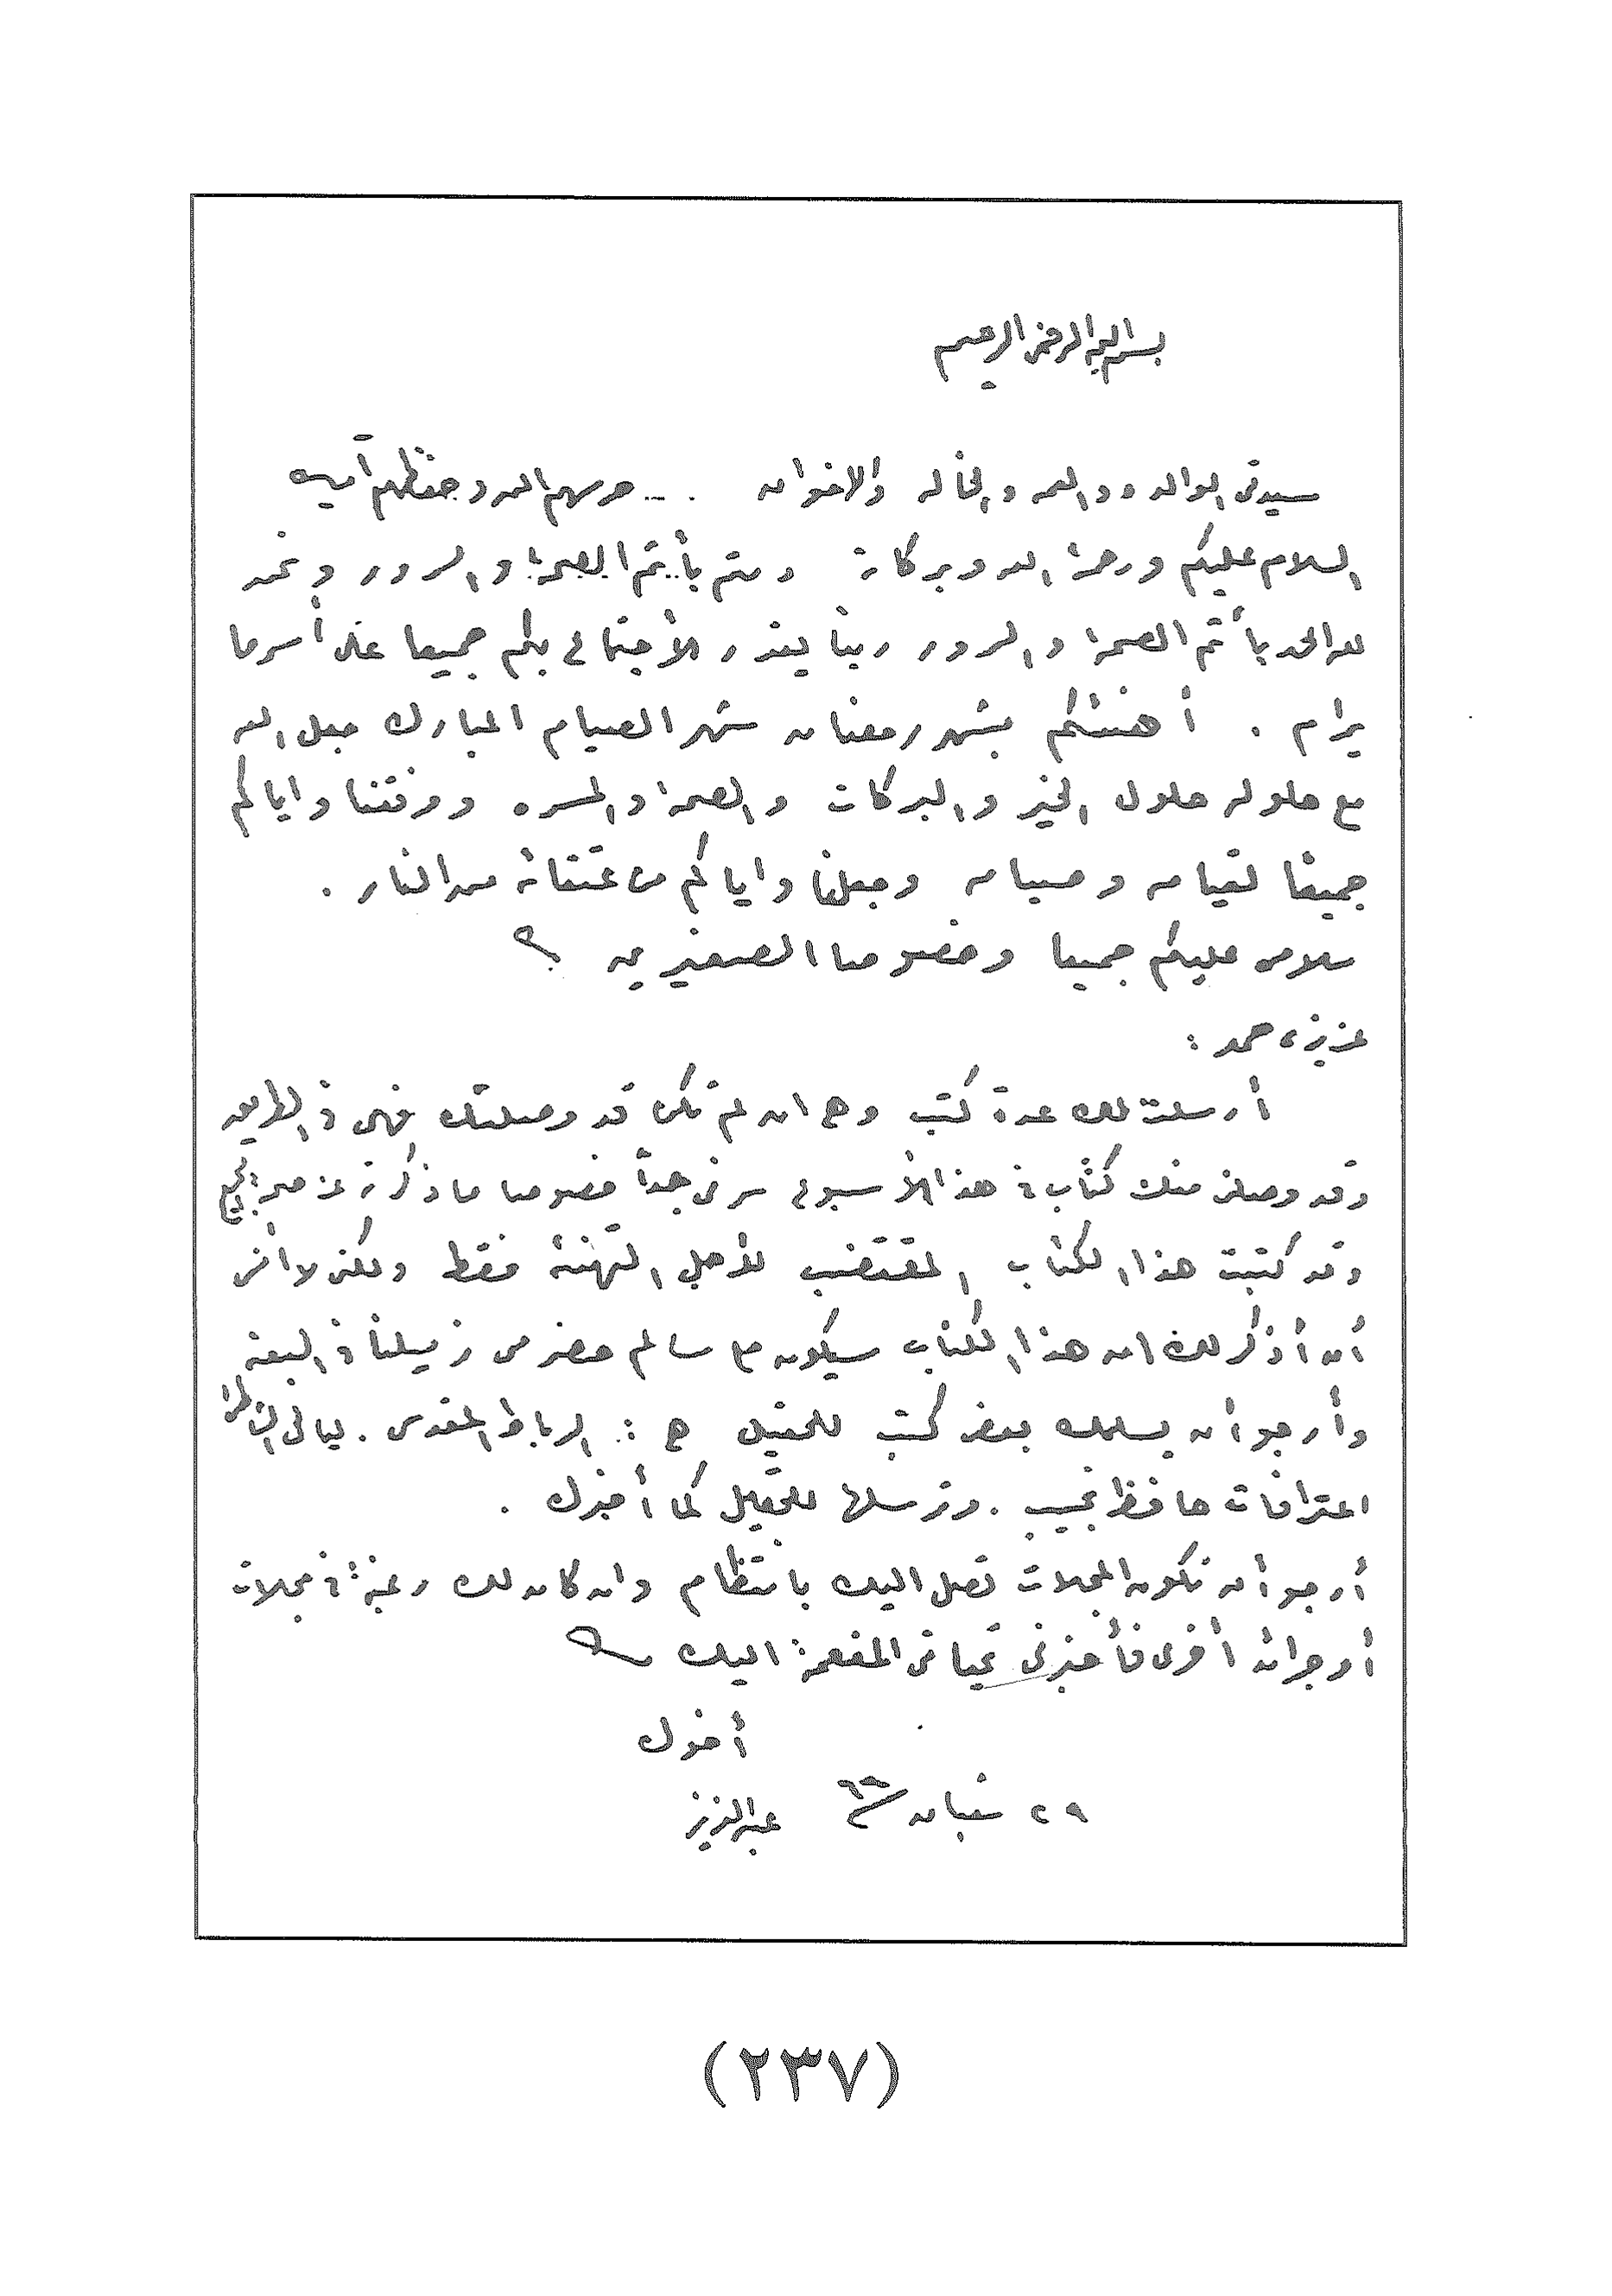 بسم الله الرحمن الرحيم
سيدتي الوالده والعمه والخاله والاخوان . ... حرسهم الله وحفظهم آمين
السلام عليكم ورحمة الله وبركاته دمتم بأتم الصحة والسرور ونحمد
لله الحمد بأتم الصحة والسرور ربنا يقدر الأجتماع بكم جميعا على أسر ما
يرام . أهنئكم بشهر رمضان شهر الصيام المبارك جعل الله
مع حلوله حلول الخير والبركات والصحة والمسره ووفقنا واياكم
جميعا لقيامه وصيامه وجعلنا واياكم من عتقائه من النار .
سلامي عليكم جميعا وخصوصا الصغيرين
عزيزي حمد :
أرسلت لك عدة كتب وهي ان لم تكن قد وصلتك فهي في الطريق
وقد وصلني منك كتاب في هذا الأسبوع سرني جداً خصوصا ما ذكرته عن صحة الجميع
وقد كتبت هذا الكتاب المقتضب لأجل التهنئة فقط ولكن لا أنس
أن أذكر لك ان هذا الكتاب سيكون مع سالم حضرمي زميلنا في البعثة
وأرجو أن يسلمك بعض كتب للعقيل هي : الرباط المقدس . ليالي الناطرا
اعترافات حافظ نجيب . وترسلها للعقيل كما أخبرك .
أرجو أن تكون المجلات تصل اليك بانتظام وان كان لك رغبة في مجلات
أو جرائد أخرى فأخبرني تحياتي المفعمة اليك
أخوك
٢٩ شعبان ٦٩ عبدالعزيز
(٢٣٧)